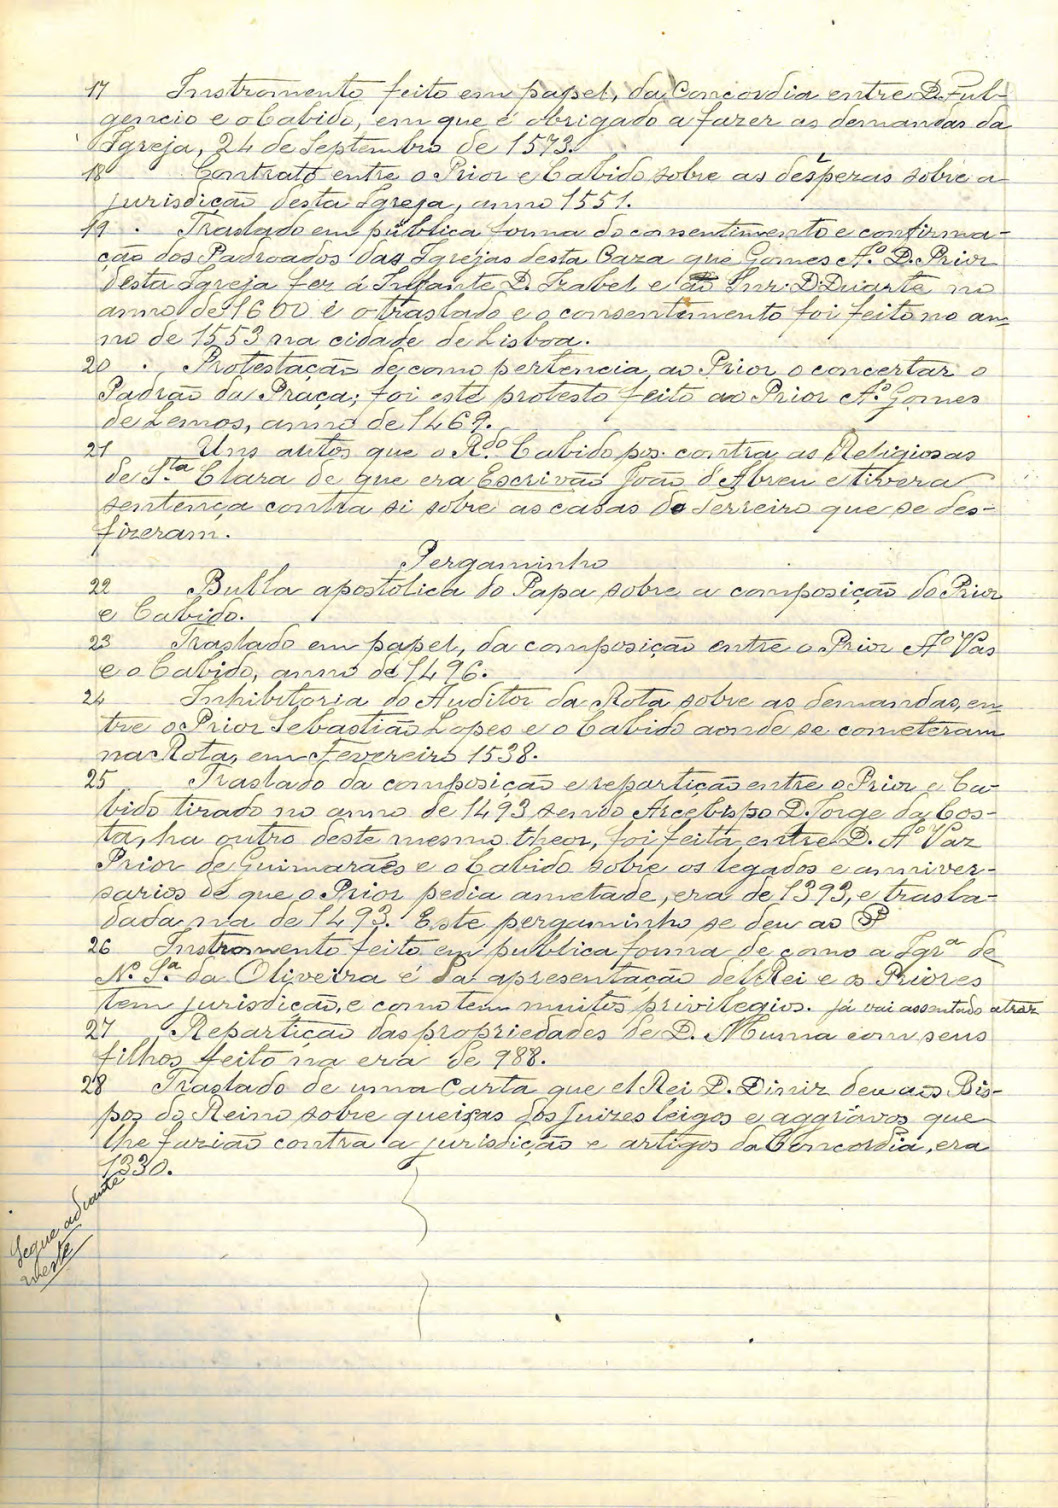 17 Instromento feito em papel, da Concordia entre D. Ful-
gencio e o Cabido, em que é obrigado a fazer as demandas da
Igreja, 24 de Septembro de 1573.
18 Contrato entre o Prior e Cabido sobre as despezas sobre a
jurisdição desta Igreja, anno 1551.
19 . Traslado em publica forma do consentimento e confirma-
ção dos Padroados das Igrejas desta Caza que Gomes Aº. D. Prior
desta Igreja fez á Infante D. Izabel e ao Snr. D Duarte no
anno de 1600 é o traslado e o consentimento foi feito no an-
no de 1553 na cidade de Lisboa.
20 . Protestação de como pertencia ao Prior o concertar o
Padrão da Praça; foi este protesto feito ao Prior Aº. Gomes
de Lemos, anno de 1469.
21 Uns autos que o Rdo. Cabido pos contra as Religiosas
de Sta. Clara de que era Escrivão João d'Abreu e tivera
sentença contra si sobre as casas do Terreiro que se des-
fizeram.
Pergaminho
22 Bulla apostolica do Papa sobre a composição do Prior
e Cabido.
23 Traslado em papel, da composição entre o Prior Aº Vas
e o Cabido, anno de 1496.
24 Inhibitoria do Auditor da Rota sobre as demandas, en-
tre o Prior Sebastião Lopes e o Cabido aonde se cometeram
na Rota, em Fevereiro 1538.
25 Traslado da composição e repartição entre o Prior e Ca-
bido tirado no anno de 1493 sendo Arcebispo D. Jorge da Cos-
ta, ha outro deste mesmo theor, foi feita entre D. Aº Vaz
Prior de Guimarães e o Cabido sobre os legados e anniver-
sarios de que o Prior pedia ametade, era de 1393, e trasla-
dada na de 1493. Este pergaminho se deu ao P
26 Instromento feito em publica forma de como a Igrª de
Nª. Sª. da Oliveira é da apresentação del Rei e os Priores
tem jurisdicção, e como tem muitos privilegios. Já vai assentado atraz
27 Repartição das propriedades de D. Muma com seus
filhos feito na era de 988.
28 Traslado de uma Carta que el Rei D. Diniz deu aos Bis-
pos do Reino sobre queixas dos Juizes leigos e aggravos que
lhe fazião contra a jurisdição e artigos da Concordia, era
1330.
Segue adiante
neste